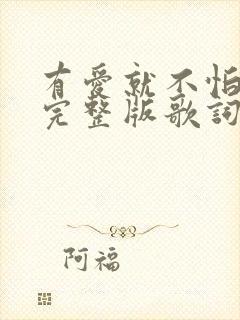 有愛就不怕
完整版歌詞
阿福